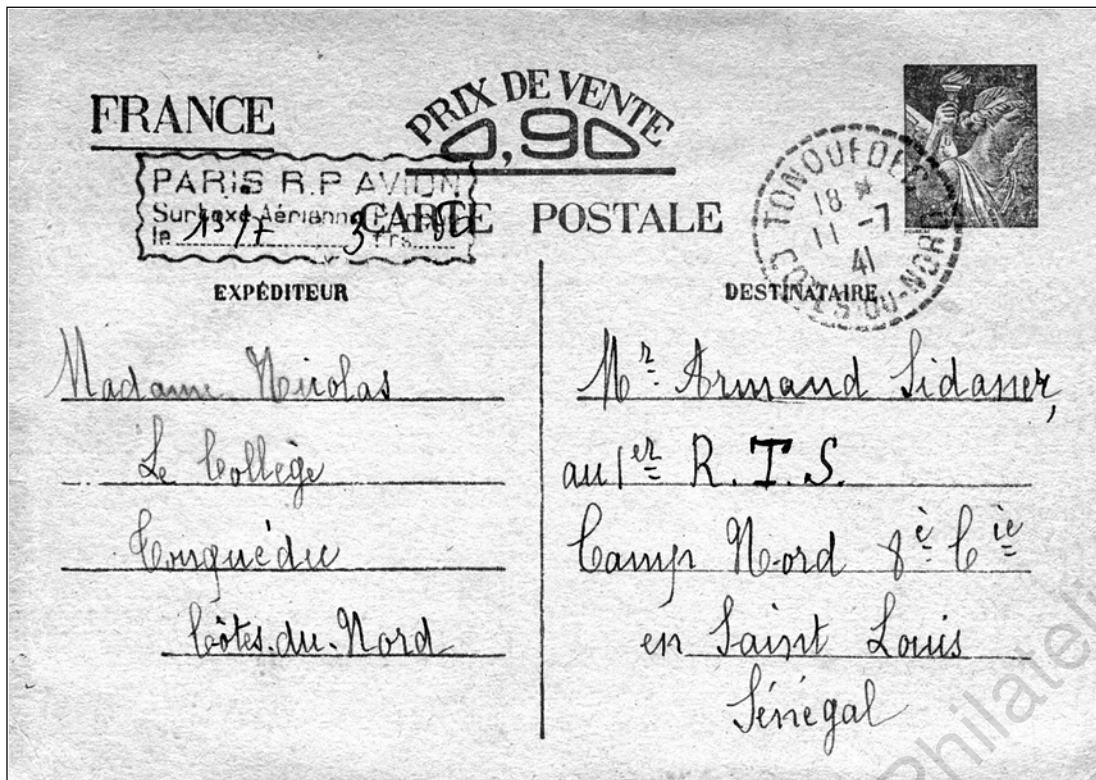 FRANCE
PRIX DE VENTE
0,90
PARIS R.P AVION
Surtaxe Aérienne
le 15/7 3 frs
CARTE POSTALE
TONQUEDEC
18 *
11 -7
41
COTES-DU-NORD
EXPÉDITEUR
Madame Nicolas
Le Collège
Tonquédec
Côtes-du-Nord
DESTINATAIRE
Mr. Armand Sidaner,
au 1er R.T.S.
Camp Nord 8è Cie
en Saint Louis
Sénégal
Philateli